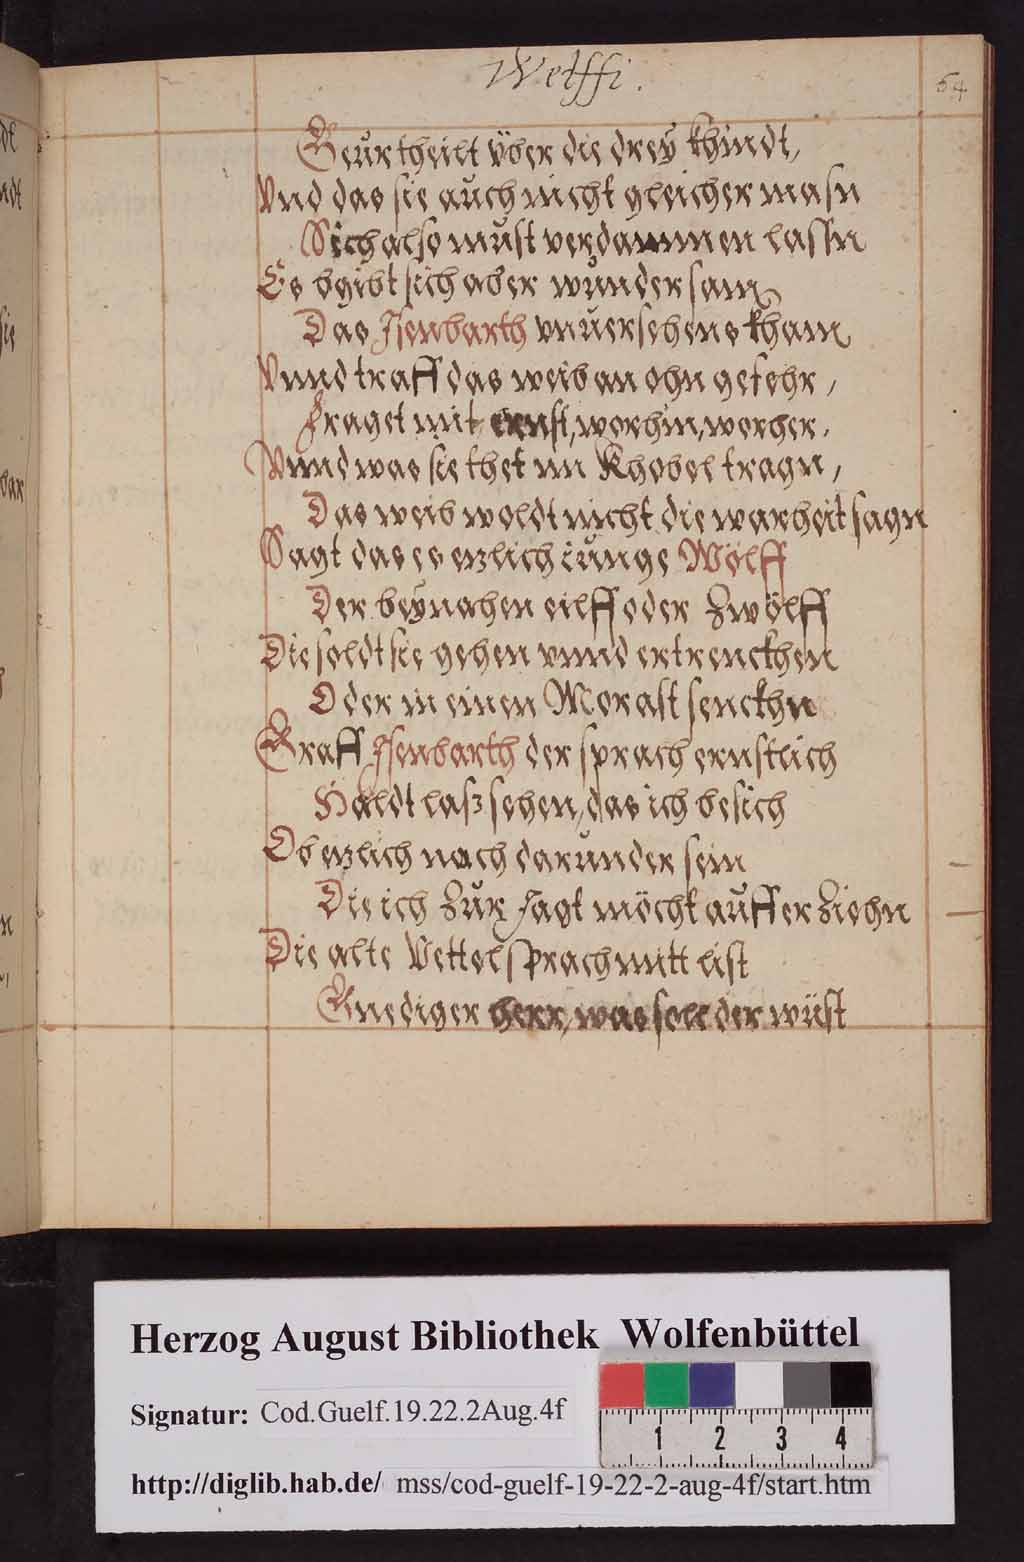 Welffi.
54
Geurtheilt vber die drey khindt,
Vnd das sie auch nicht gleicher masn
Sich also must verdammen lassn
Es bgibt sich aber wundersam,
Das Isenbarth vnuersehens kham
Vnnd traff das weib an ohn gefehr,
Fraget mit ernst, worhin, worher,
Vnnd was sie thet im Khobel tragn,
Das weib woldt nicht die warheit sagn
Sagt das es ezlich iunge Wölff
Der beynahen eilff oder Zwölff
Die soldt sie gehen vnnd ertrenckhen
Oder in einen Morast senckhn
Graff Isenbarth der sprach ernstlich
Haldt lasz sehen, das ich besich
Ob ezlich nach darunder sein
Die ich Zur Jagt möcht aufferZiehn
Die alte Vettel sprach mitt list
Gnediger herr, was soll der wüst
Herzog August Bibliothek Wolfenbüttel
Signatur: Cod.Guelf.19.22.2Aug.4f
1 2 3 4
http://diglib.hab.de/ mss/cod-guelf-19-22-2-aug-4f/start.htm